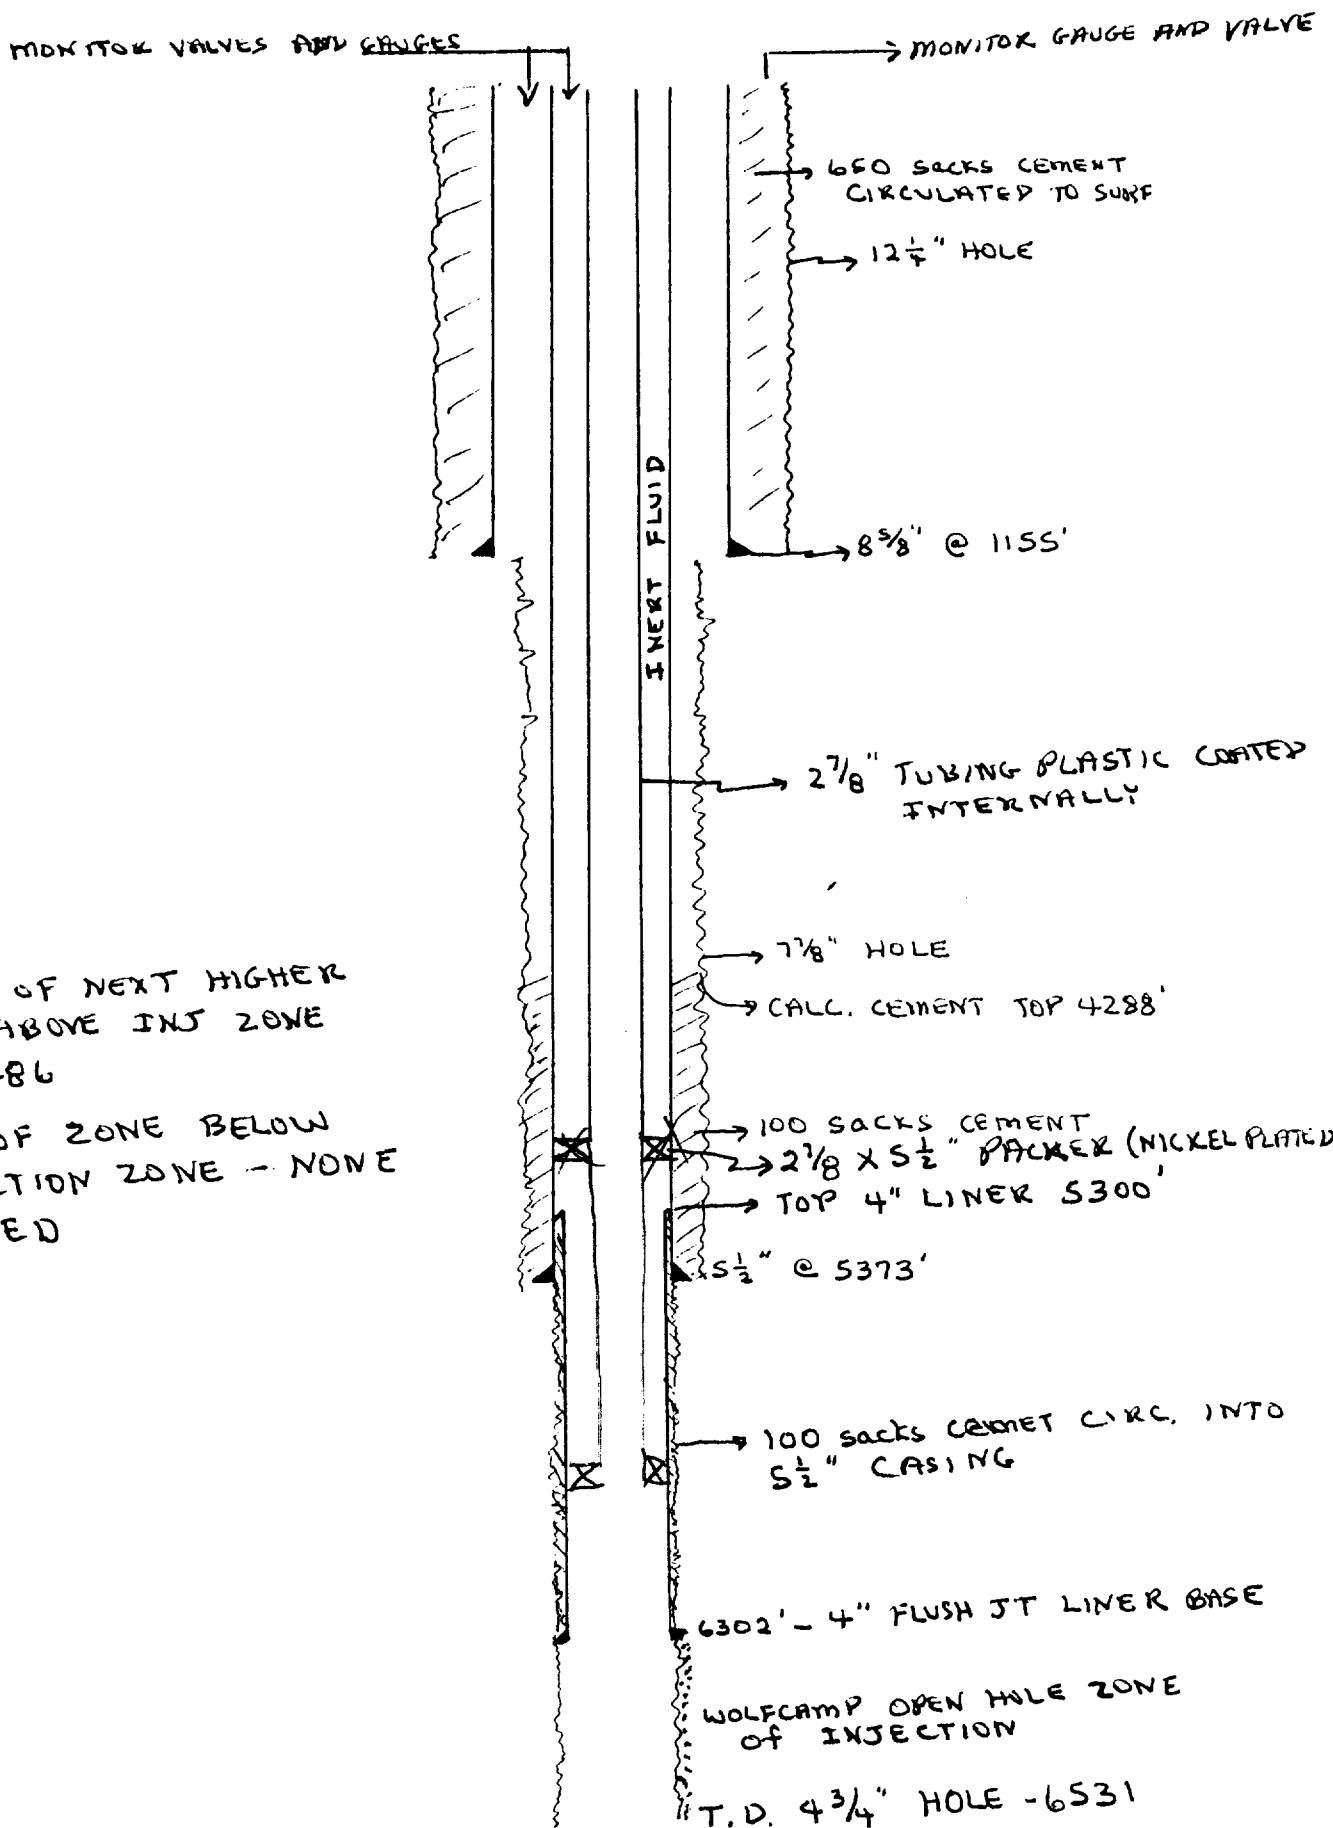 MONITOR VALVES AND GAUGES
MONITOR GAUGE AND VALVE
650 SACKS CEMENT
CIRCULATED TO SURF
12 1/4" HOLE
INERT FLUID
8 5/8" @ 1155'
2 7/8" TUBING PLASTIC COATED
INTERNALLY
7 7/8" HOLE
CALC. CEMENT TOP 4288'
OF NEXT HIGHER
ABOVE INJ ZONE
86
OF ZONE BELOW
CTION ZONE - NONE
ED
100 SACKS CEMENT
2 7/8 X 5 1/2" PACKER (NICKEL PLATED
TOP 4" LINER 5300'
5 1/2" @ 5373'
100 SACKS CEMET CIRC. INTO
5 1/2" CASING
6302' - 4" FLUSH JT LINER BASE
WOLFCAMP OPEN HOLE ZONE
OF INJECTION
T.D. 4 3/4" HOLE - 6531